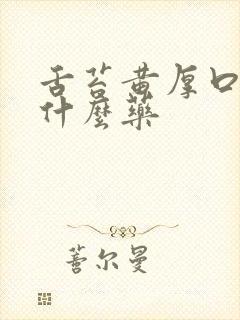 舌苔黄厚口
什麼藥
蓍尔曼